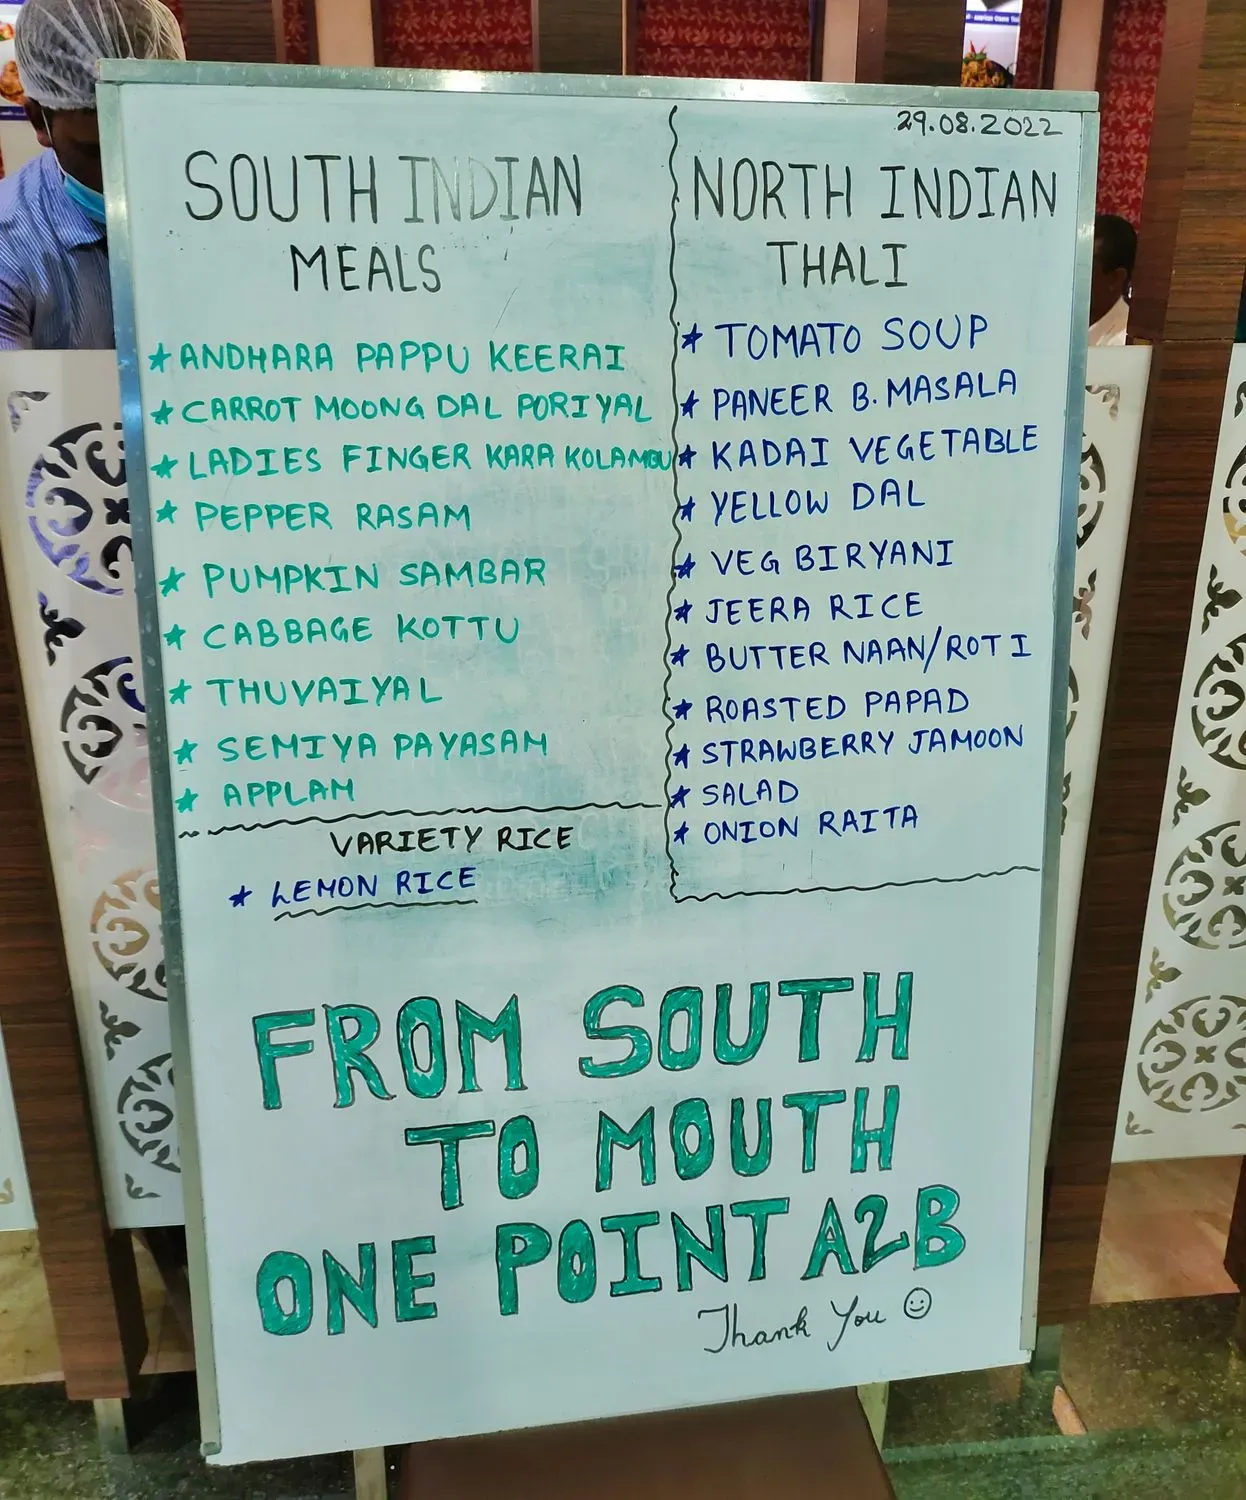 29.08.2022
SOUTH INDIAN
MEALS
★ ANDHARA PAPPU KEERAI
★ CARROT MOONG DAL PORIYAL
★ LADIES FINGER KARA KOLAMBU
★ PEPPER RASAM
★ PUMPKIN SAMBAR
★ CABBAGE KOTTU
★ THUVAIYAL
★ SEMIYA PAYASAM
★ APPLAM
VARIETY RICE
★ LEMON RICE
NORTH INDIAN
THALI
★ TOMATO SOUP
★ PANEER B. MASALA
★ KADAI VEGETABLE
★ YELLOW DAL
★ VEG BIRYANI
★ JEERA RICE
★ BUTTER NAAN/ROTI
★ ROASTED PAPAD
★ STRAWBERRY JAMOON
★ SALAD
★ ONION RAITA
FROM SOUTH
TO MOUTH
ONE POINT A2B
Thank You ☺